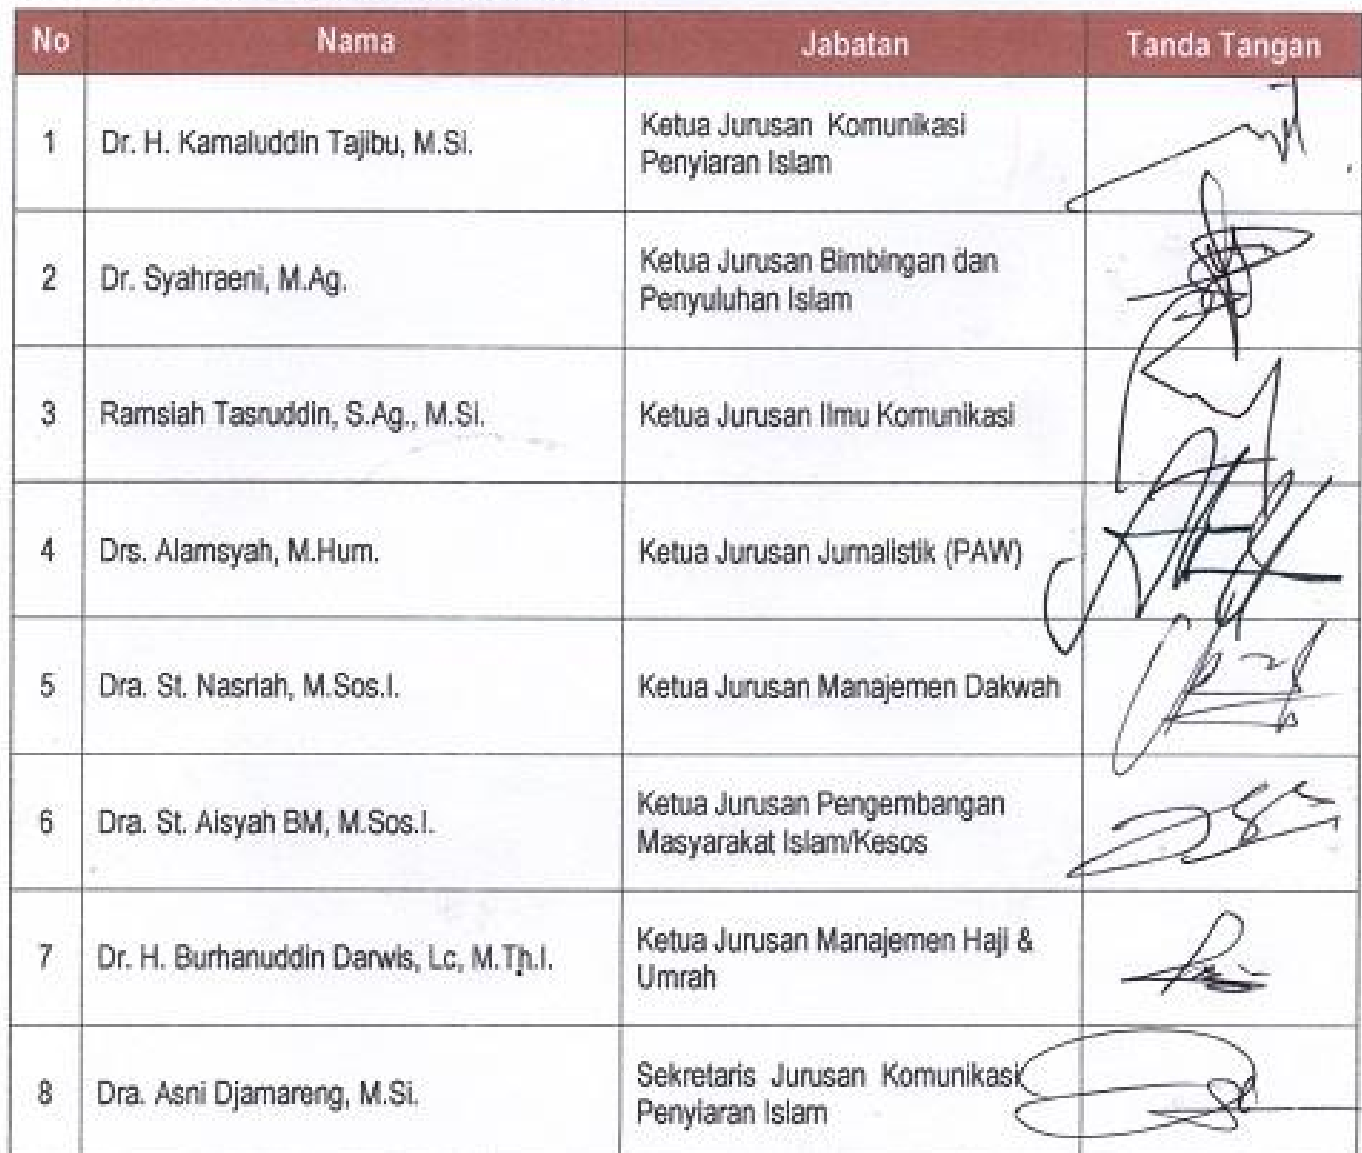 No Nama Jabatan Tanda Tangan
1 Dr. H. Kamaluddin Tajibu, M.Si. Ketua Jurusan Komunikasi
Penyiaran Islam
2 Dr. Syahraeni, M.Ag. Ketua Jurusan Bimbingan dan
Penyuluhan Islam
3 Ramsiah Tasruddin, S.Ag., M.Si. Ketua Jurusan Ilmu Komunikasi
4 Drs. Alamsyah, M.Hum. Ketua Jurusan Jurnalistik (PAW)
5 Dra. St. Nasriah, M.Sos.I. Ketua Jurusan Manajemen Dakwah
6 Dra. St. Aisyah BM, M.Sos.I. Ketua Jurusan Pengembangan
Masyarakat Islam/Kesos
7 Dr. H. Burhanuddin Darwis, Lc, M.Th.I. Ketua Jurusan Manajemen Haji &
Umrah
8 Dra. Asni Djamareng, M.Si. Sekretaris Jurusan Komunikasi
Penyiaran Islam